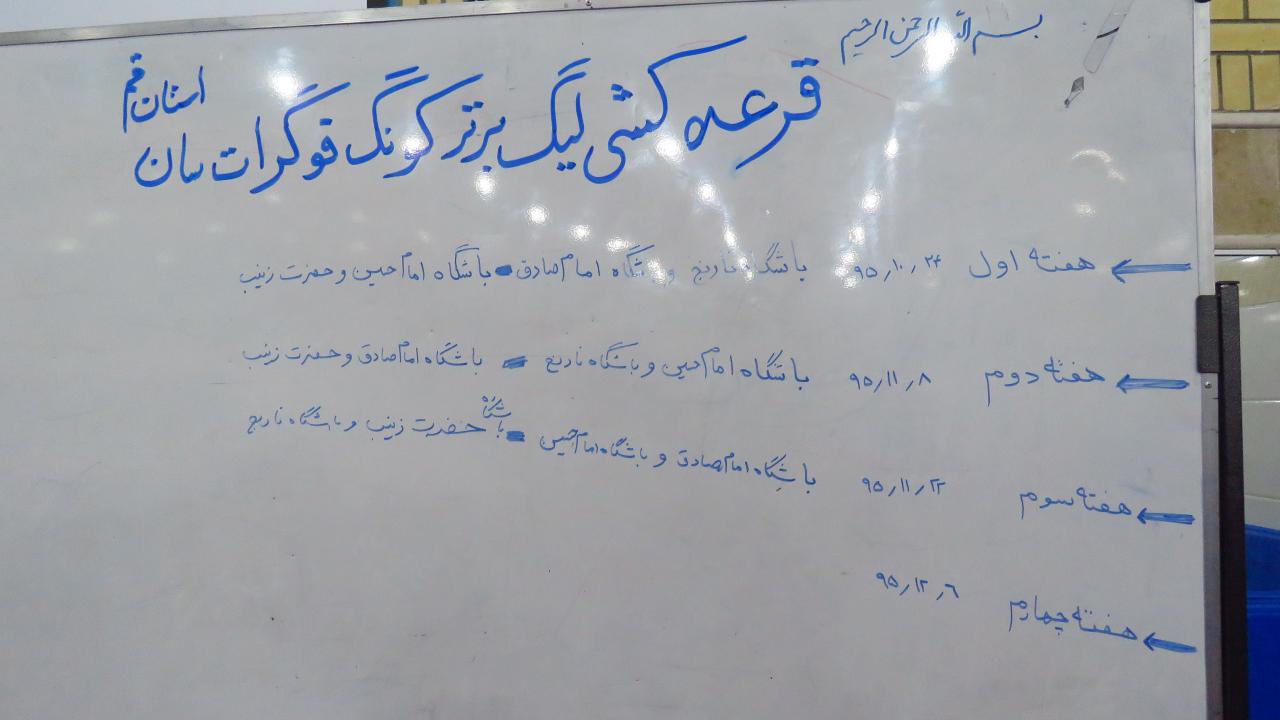 بسم الله الرحمن الرحیم
قرعه کشی لیگ برتر کونگ فو کرات سان
استان قم
هفته اول ۹۵٫۱۰٫۲۴ باشگاه نارنج و باشگاه امام صادق - باشگاه امام حسین و حضرت زینب
هفته دوم ۹۵٫۱۱٫۸ باشگاه امام حسین و باشگاه نارنج - باشگاه امام صادق و حضرت زینب
هفته سوم ۹۵٫۱۱٫۲۲ باشگاه امام صادق و باشگاه امام حسین - باشگاه حضرت زینب و باشگاه نارنج
هفته چهارم ۹۵٫۱۲٫۶